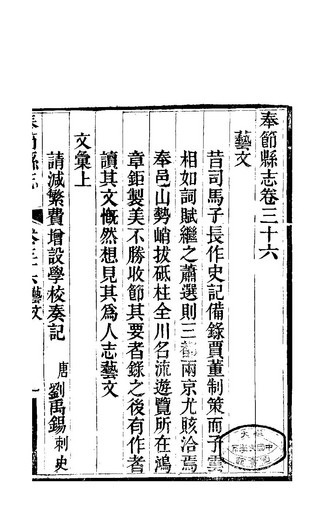 奉節縣志卷三十六
藝文
昔司馬子長作史記備錄賈董制策而子雲
相如詞賦繼之蕭選則三都兩京尤賅洽焉
奉邑山勢峭拔砥柱全川名流遊覽所在鴻
章鉅製美不勝收節其要者錄之後有作者
讀其文慨然想見其爲人志藝文
文彙上
請減繁費增設學校奏記 唐 劉禹錫 刺史
奉節縣志 卷三十六 藝文 一